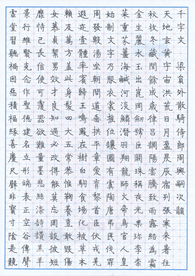 千字文 梁 員外散騎侍郎周興嗣次韻
天地玄黃宇宙洪荒日月盈昃辰宿列張寒來暑往
秋收冬藏閏餘成歲律呂調陽雲騰致雨露結為霜
金生麗水玉出崑岡劍號巨闕珠稱夜光果珍李柰
菜重芥薑海鹹河淡鱗潛羽翔龍師火帝鳥官人皇
始制文字乃服衣裳推位讓國有虞陶唐弔民伐罪
周發殷湯坐朝問道垂拱平章愛育黎首臣伏戎羌
遐邇壹體率賓歸王鳴鳳在樹白駒食場化被草木
賴及萬方蓋此身髮四大五常恭惟鞠養豈敢毀傷
女慕貞絜男效才良知過必改得能莫忘罔談彼短
靡恃己長信使可覆器欲難量墨悲絲染詩讚羔羊
景行維賢克念作聖德建名立形端表正空谷傳聲
虛堂習聽禍因惡積福緣善慶尺璧非寶寸陰是競